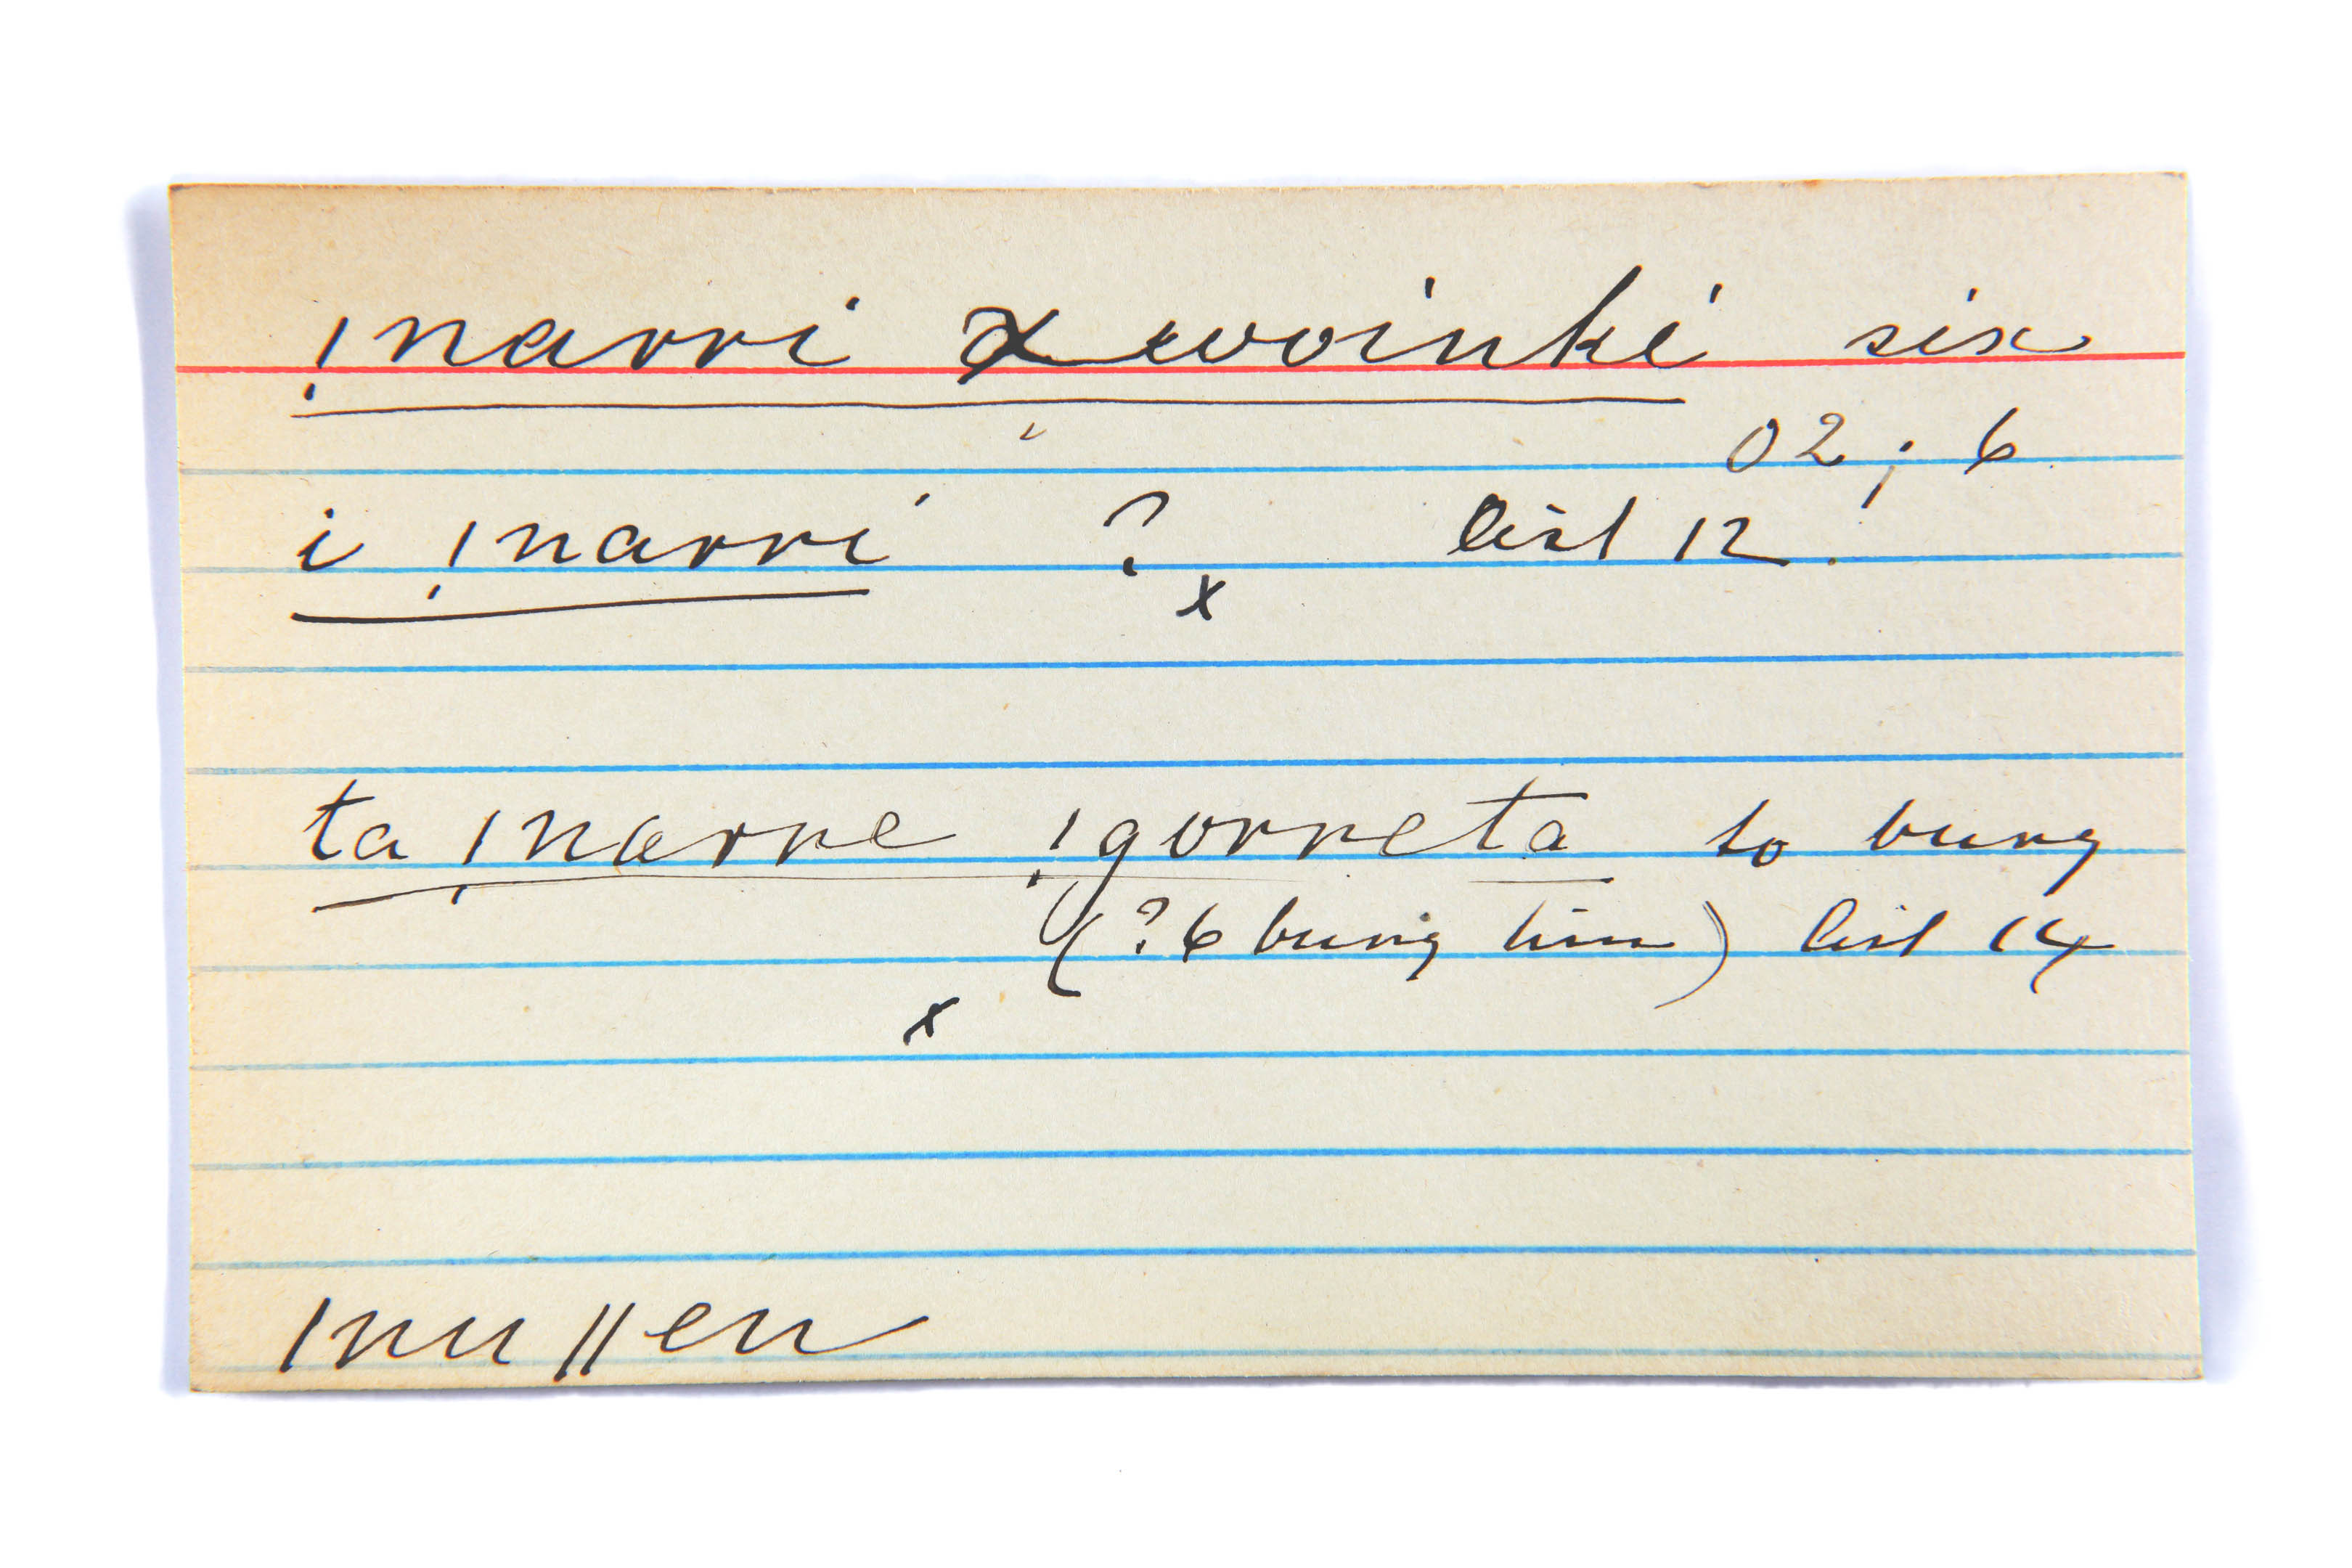 !narri xwoinki six
02; 6.
i !narri ? list 12.
x
ta !narre !gorreta to bury
(? to bury him) list 14
x
|nu||en